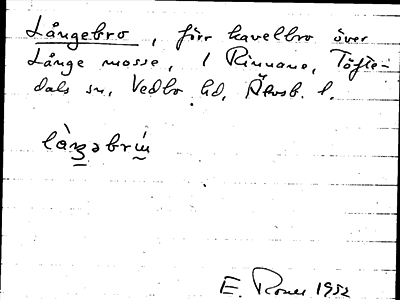 Långebro, förr kavelbro över
Långe mosse, i Rinnane, Töfte-
dals sn, Vedbo hd, Älvsb. l.
E. 1952